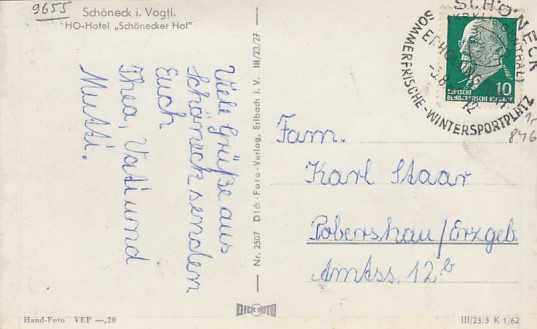 9655
Schöneck i. Vogtl.
HO-Hotel „Schönecker Hof"
Viele Grüße aus
Schöneck senden
Euch
Thea, Vati und
Mutti.
Nr. 2507 Dick-Foto-Verlag, Erlbach i. V. III/23/27
DICK FOTO
SCHÖNECK
ERHOLUNG
SOMMERFRISCHE-WINTERSPORTPLATZ
10
DEUTSCHE
DEMOKRATISCHE REPUBLIK
846
Fam.
Karl Staar
Pobershau/Erzgeb
Amtss. 12b
Hand-Foto VEP —,20
III/23/3 K 1/62